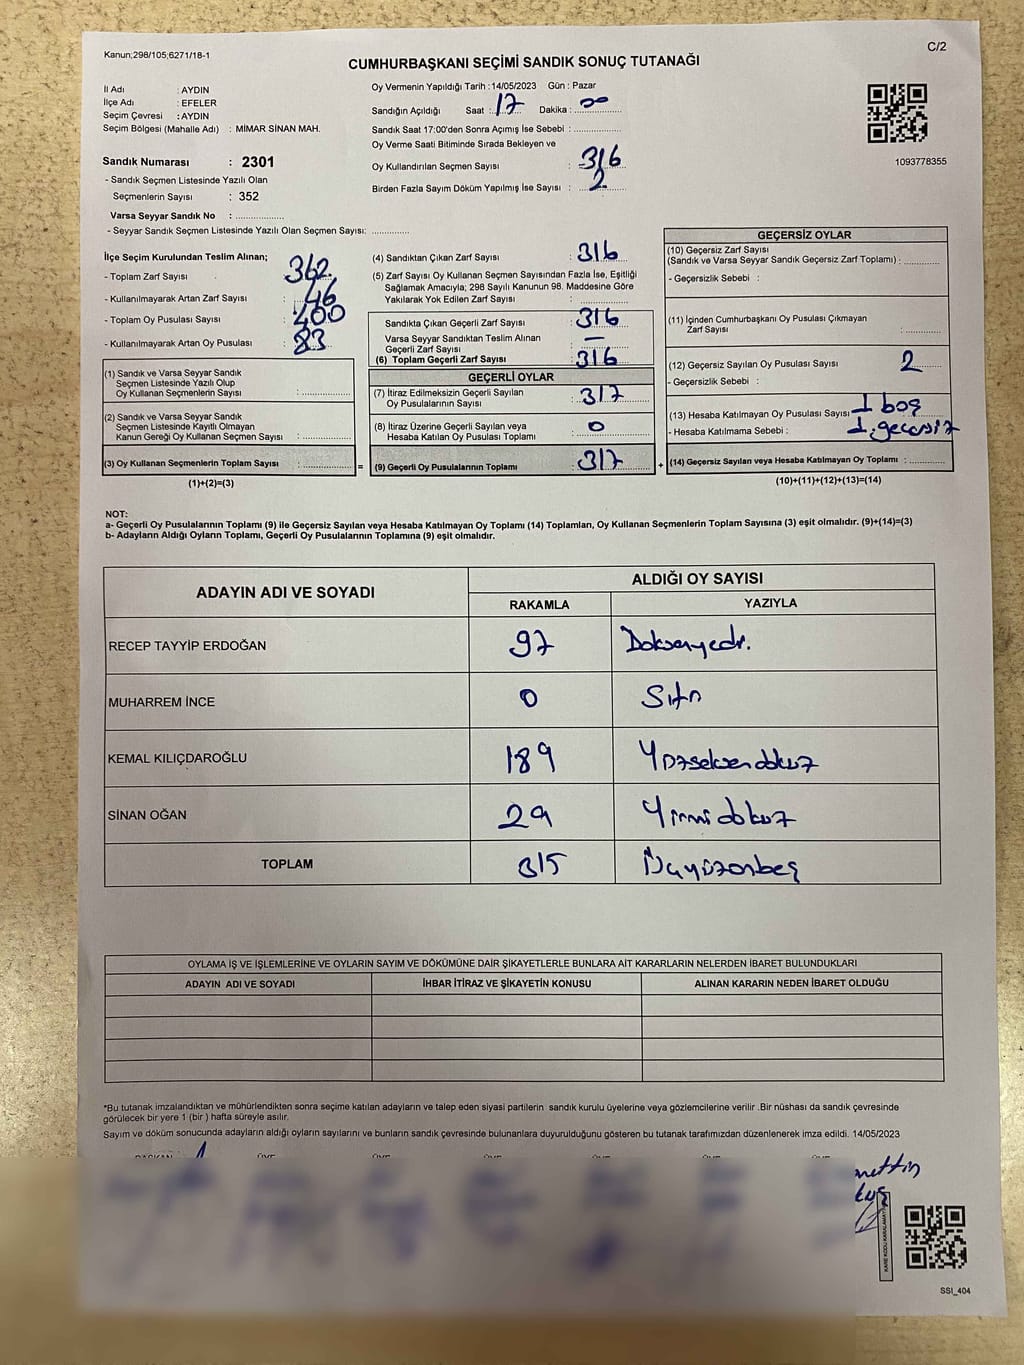 Kanun;298/105;6271/18-1
C/2
CUMHURBAŞKANI SEÇİMİ SANDIK SONUÇ TUTANAĞI
İl Adı : AYDIN
İlçe Adı : EFELER
Seçim Çevresi : AYDIN
Seçim Bölgesi (Mahalle Adı) : MİMAR SİNAN MAH.
Sandık Numarası : 2301
- Sandık Seçmen Listesinde Yazılı Olan
Seçmenlerin Sayısı : 352
Varsa Seyyar Sandık No : ................
- Seyyar Sandık Seçmen Listesinde Yazılı Olan Seçmen Sayısı: ............
Oy Vermenin Yapıldığı Tarih :14/05/2023 Gün : Pazar
Sandığın Açıldığı Saat : 17 Dakika : 00
Sandık Saat 17:00'den Sonra Açımış İse Sebebi : ................
Oy Verme Saati Bitiminde Sırada Bekleyen ve
Oy Kullandırılan Seçmen Sayısı : 316
Birden Fazla Sayım Döküm Yapılmış İse Sayısı : 2
1093778355
İlçe Seçim Kurulundan Teslim Alınan;
- Toplam Zarf Sayısı : 362
- Kullanılmayarak Artan Zarf Sayısı : 46
- Toplam Oy Pusulası Sayısı : 400
- Kullanılmayarak Artan Oy Pusulası : 83
(1) Sandık ve Varsa Seyyar Sandık
Seçmen Listesinde Yazılı Olup
Oy Kullanan Seçmenlerin Sayısı : ................
(2) Sandık ve Varsa Seyyar Sandık
Seçmen Listesinde Kayıtlı Olmayan
Kanun Gereği Oy Kullanan Seçmen Sayısı : ................
(3) Oy Kullanan Seçmenlerin Toplam Sayısı : ................ =
(1)+(2)=(3)
(4) Sandıktan Çıkan Zarf Sayısı : 316
(5) Zarf Sayısı Oy Kullanan Seçmen Sayısından Fazla İse, Eşitliği
Sağlamak Amacıyla; 298 Sayılı Kanunun 98. Maddesine Göre
Yakılarak Yok Edilen Zarf Sayısı : ................
Sandıkta Çıkan Geçerli Zarf Sayısı : 316
Varsa Seyyar Sandıktan Teslim Alınan
Geçerli Zarf Sayısı : —
(6) Toplam Geçerli Zarf Sayısı : 316
GEÇERLİ OYLAR
(7) İtiraz Edilmeksizin Geçerli Sayılan
Oy Pusulalarının Sayısı : 317
(8) İtiraz Üzerine Geçerli Sayılan veya
Hesaba Katılan Oy Pusulası Toplamı : 0
(9) Geçerli Oy Pusulalarının Toplamı : 317 +
GEÇERSİZ OYLAR
(10) Geçersiz Zarf Sayısı
(Sandık ve Varsa Seyyar Sandık Geçersiz Zarf Toplamı) : ............
- Geçersizlik Sebebi :
(11) İçinden Cumhurbaşkanı Oy Pusulası Çıkmayan
Zarf Sayısı : ............
(12) Geçersiz Sayılan Oy Pusulası Sayısı : 2
- Geçersizlik Sebebi :
(13) Hesaba Katılmayan Oy Pusulası Sayısı : 1 boş
- Hesaba Katılmama Sebebi : 1.geçersiz
(14) Geçersiz Sayılan veya Hesaba Katılmayan Oy Toplamı : ............
(10)+(11)+(12)+(13)=(14)
NOT:
a- Geçerli Oy Pusulalarının Toplamı (9) ile Geçersiz Sayılan veya Hesaba Katılmayan Oy Toplamı (14) Toplamları, Oy Kullanan Seçmenlerin Toplam Sayısına (3) eşit olmalıdır. (9)+(14)=(3)
b- Adayların Aldığı Oyların Toplamı, Geçerli Oy Pusulalarının Toplamına (9) eşit olmalıdır.
ADAYIN ADI VE SOYADI
ALDIĞI OY SAYISI
RAKAMLA YAZIYLA
RECEP TAYYİP ERDOĞAN 97 Doksanyedi.
MUHARREM İNCE 0 Sıfır
KEMAL KILIÇDAROĞLU 189 Yüzseksendokuz
SİNAN OĞAN 29 Yirmidokuz
TOPLAM 315 Üçyüzonbeş
OYLAMA İŞ VE İŞLEMLERİNE VE OYLARIN SAYIM VE DÖKÜMÜNE DAİR ŞİKAYETLERLE BUNLARA AİT KARARLARIN NELERDEN İBARET BULUNDUKLARI
ADAYIN ADI VE SOYADI İHBAR İTİRAZ VE ŞİKAYETİN KONUSU ALINAN KARARIN NEDEN İBARET OLDUĞU
*Bu tutanak imzalandıktan ve mühürlendikten sonra seçime katılan adayların ve talep eden siyasi partilerin sandık kurulu üyelerine veya gözlemcilerine verilir .Bir nüshası da sandık çevresinde
görülecek bir yere 1 (bir ) hafta süreyle asılır.
Sayım ve döküm sonucunda adayların aldığı oyların sayılarını ve bunların sandık çevresinde bulunanlara duyurulduğunu gösteren bu tutanak tarafımızdan düzenlenerek imza edildi. 14/05/2023
BAŞKAN ÜYE ÜYE ÜYE ÜYE ÜYE ÜYE
SSI_404